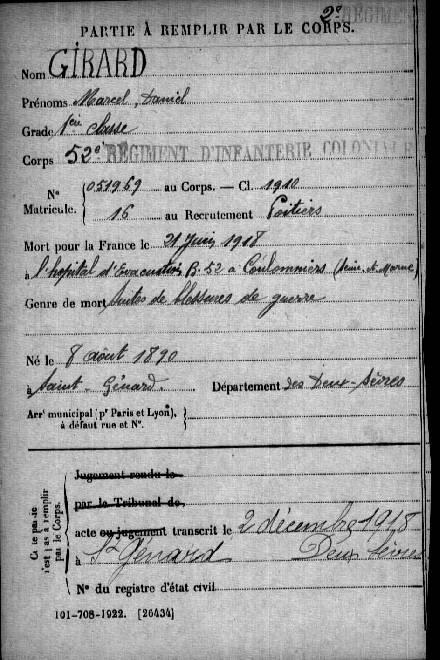 2e REGIMEN
PARTIE À REMPLIR PAR LE CORPS.
Nom GIRARD
Prénoms Marcel, Daniel
Grade 1ère classe
Corps 52e REGIMENT D'INFANTERIE COLONIALE
No Matricule. 051969 au Corps. — Cl. 1910
16 au Recrutement Poitiers
Mort pour la France le 21 Juin 1918
à l'hopital d'Evacuation B. 52 à Coulommiers (Seine et Marne)
Genre de mort Suites de blessures de guerre
Né le 8 août 1890
à Saint-Génard Département des Deux-Sèvres
Arrt municipal (pr Paris et Lyon),
à défaut rue et No.
Cette partie n'est pas à remplir par le Corps.
Jugement rendu le
par le Tribunal de
acte ou jugement transcrit le 2 décembre 1918
à St Génard Deux Sèvres
No du registre d'état civil
101-708-1922. [26434]